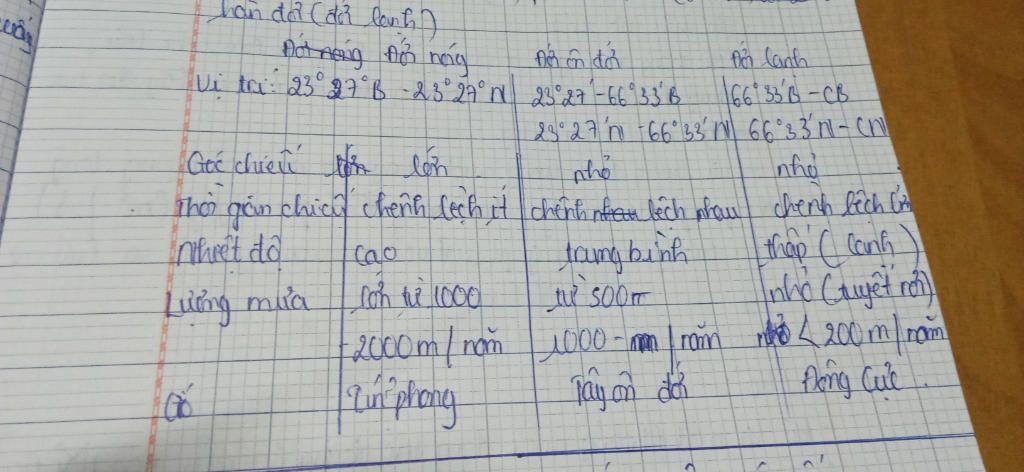 hàn đới (đới lạnh)
Đới nóng Đới nóng Đới ôn đới Đới lạnh
Vị trí: 23°27°B - 23°27°N 23°27' - 66°33'B 66°33'B - CB
23°27'N - 66°33'N 66°33'N - CN
Góc chiếu lớn lớn nhỏ nhỏ
Thời gian chiếu chênh lệch ít chênh nhau lệch nhau chênh lệch lớn
Nhiệt độ cao trung bình thấp (lạnh)
Lượng mưa lớn từ 1000 từ 500m nhỏ (tuyết rơi)
-2000m/năm 1000-mm/năm nhỏ <200m/năm
Gió Tín phong Tây ôn đới Đông Cực.